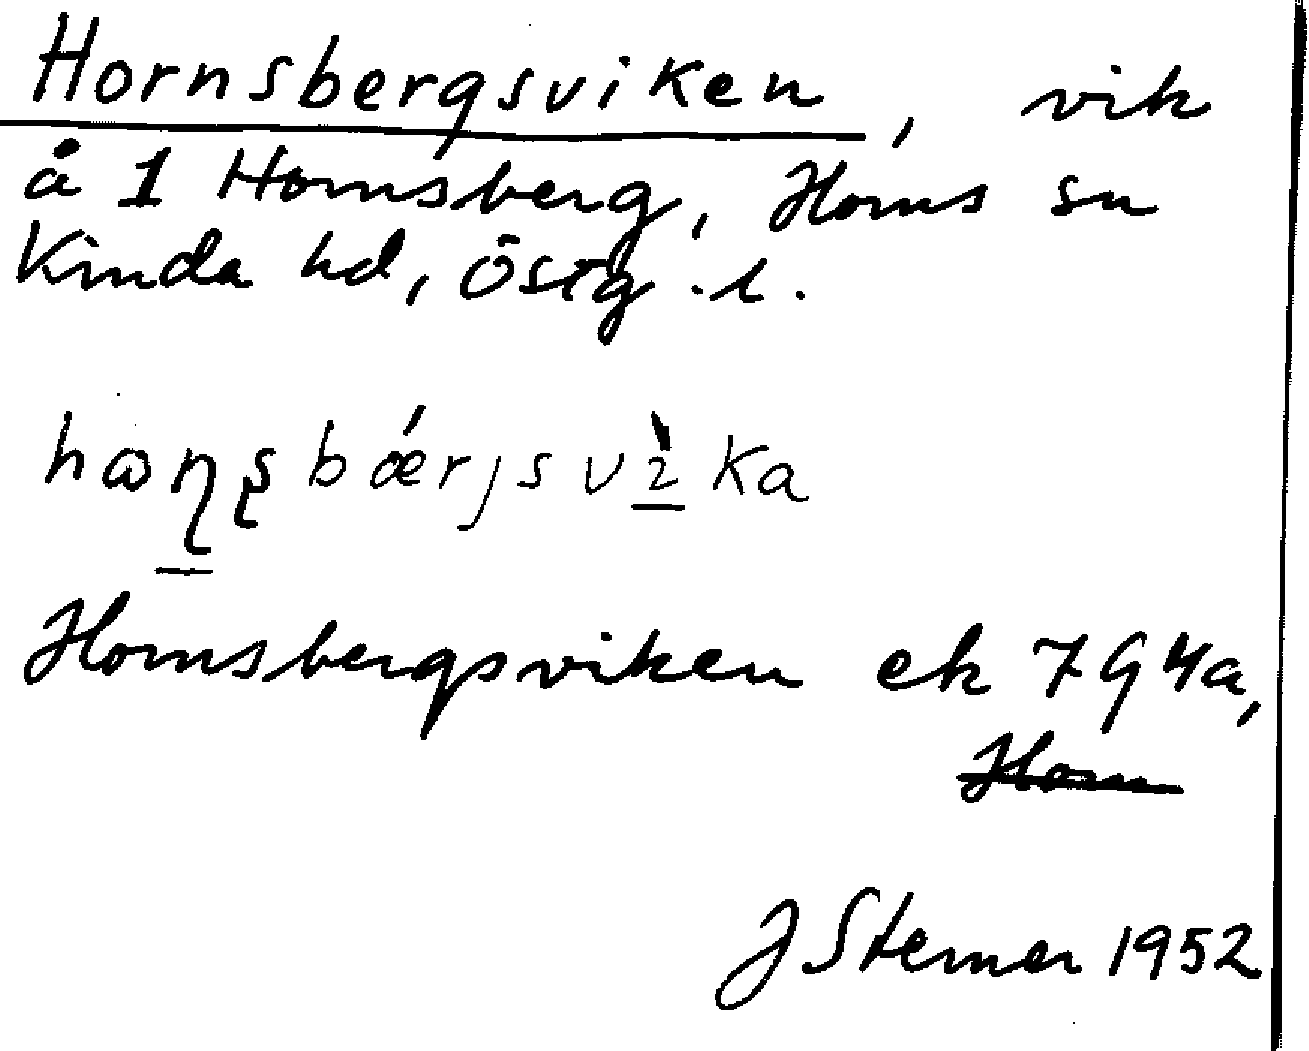 Hornsbergsviken, vik
å 1 Hornsberg, Horns sn
Kinda hd, Östg. l.
hɷɳʂbǽrjsvìka
Hornsbergsviken ek 7 G 4a,
Horn
J Sterner 1952